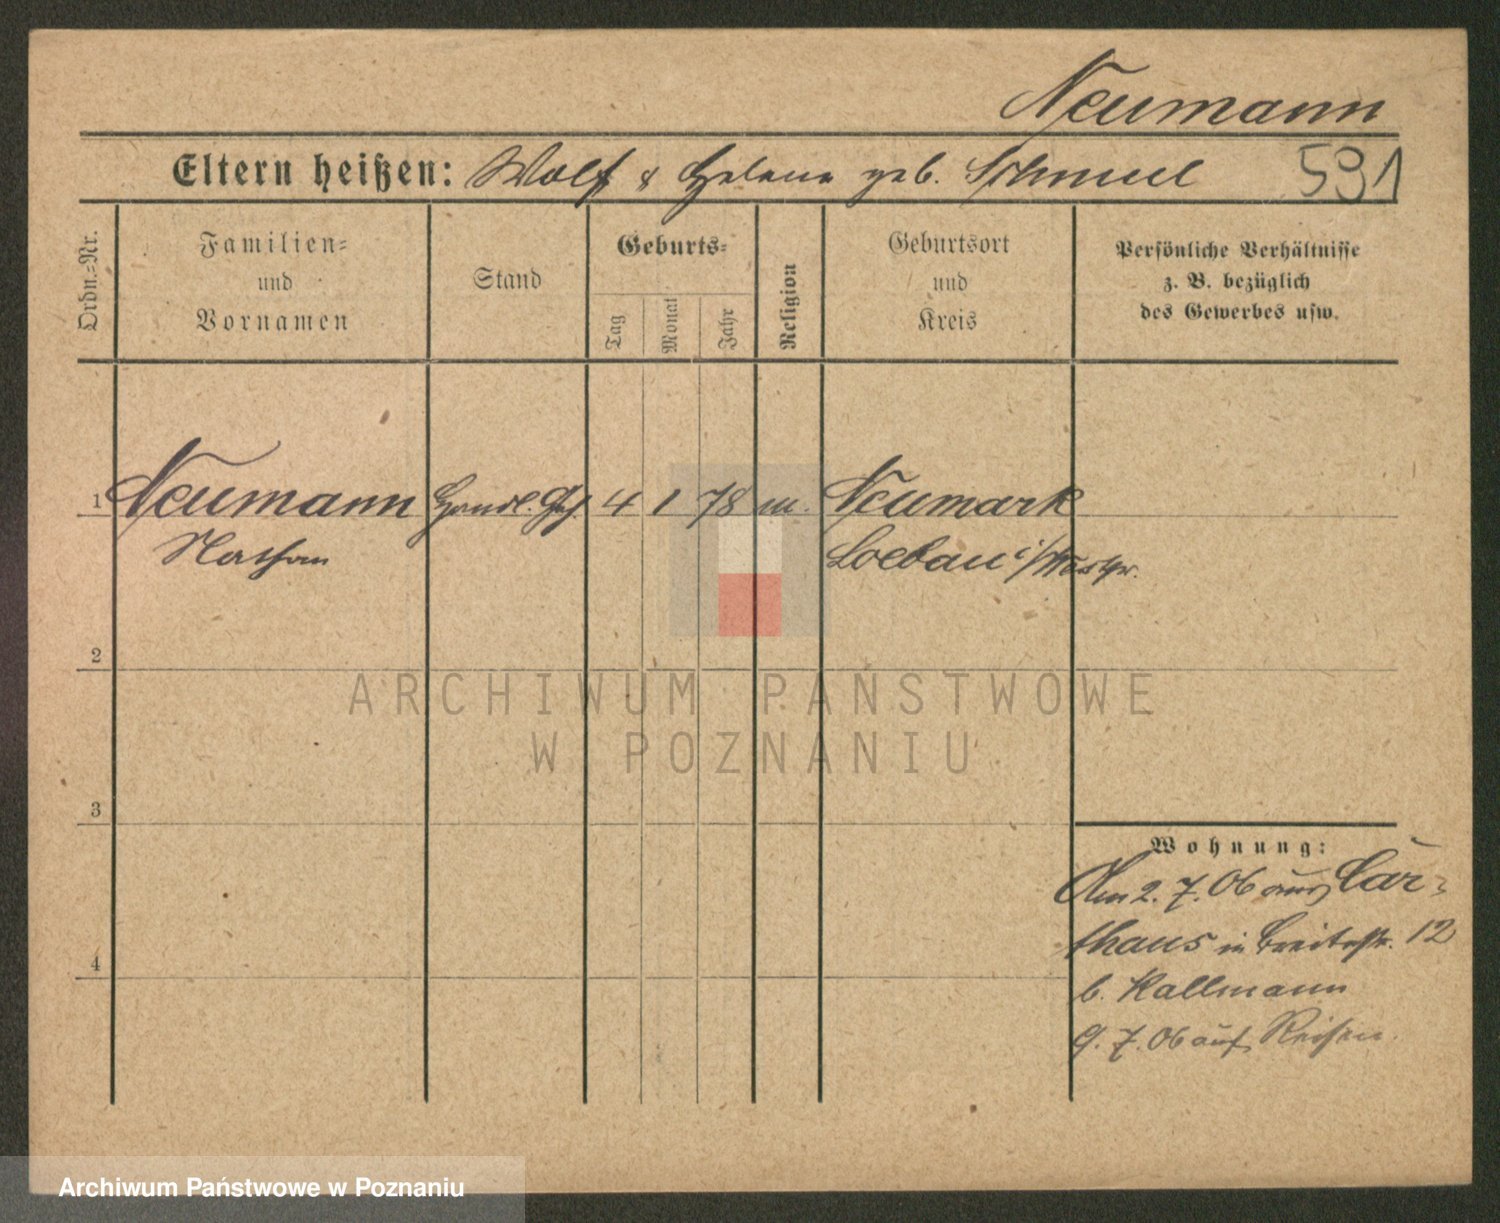 Neumann
Eltern heißen: Wolf & Helene geb. Schmuel 591
Ordn.-Nr.
Familien-
und
Vornamen
Stand
Geburts-
Tag
Monat
Jahr
Religion
Geburtsort
und
Kreis
Persönliche Verhältnisse
z. B. bezüglich
des Gewerbes usw.
1 Neumann Handl. Geh. 4 1 78 m. Neumark
Nathan Loebau i/Westpr.
2
3
4
ARCHIWUM PAŃSTWOWE
W POZNANIU
Wohnung:
Am 2. 7. 06 aus Car-
thaus in Breitestr. 12
b. Kallmann
9. 7. 06 auf Reisen.
Archiwum Państwowe w Poznaniu